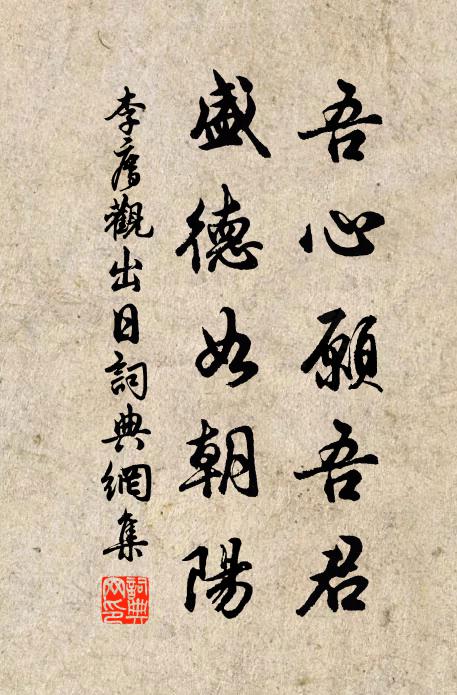 吾心願吾君
盛德如朝陽
李廌觀出日詞典網集
詞典網印